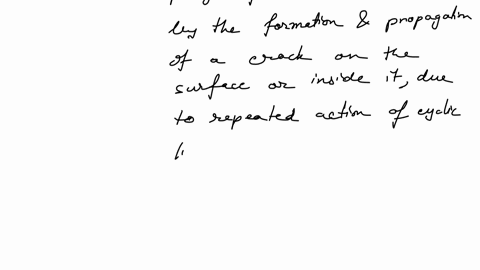 by the formation & propagation
of a crack on the
surface or inside it, due
to repeated action of cyclic